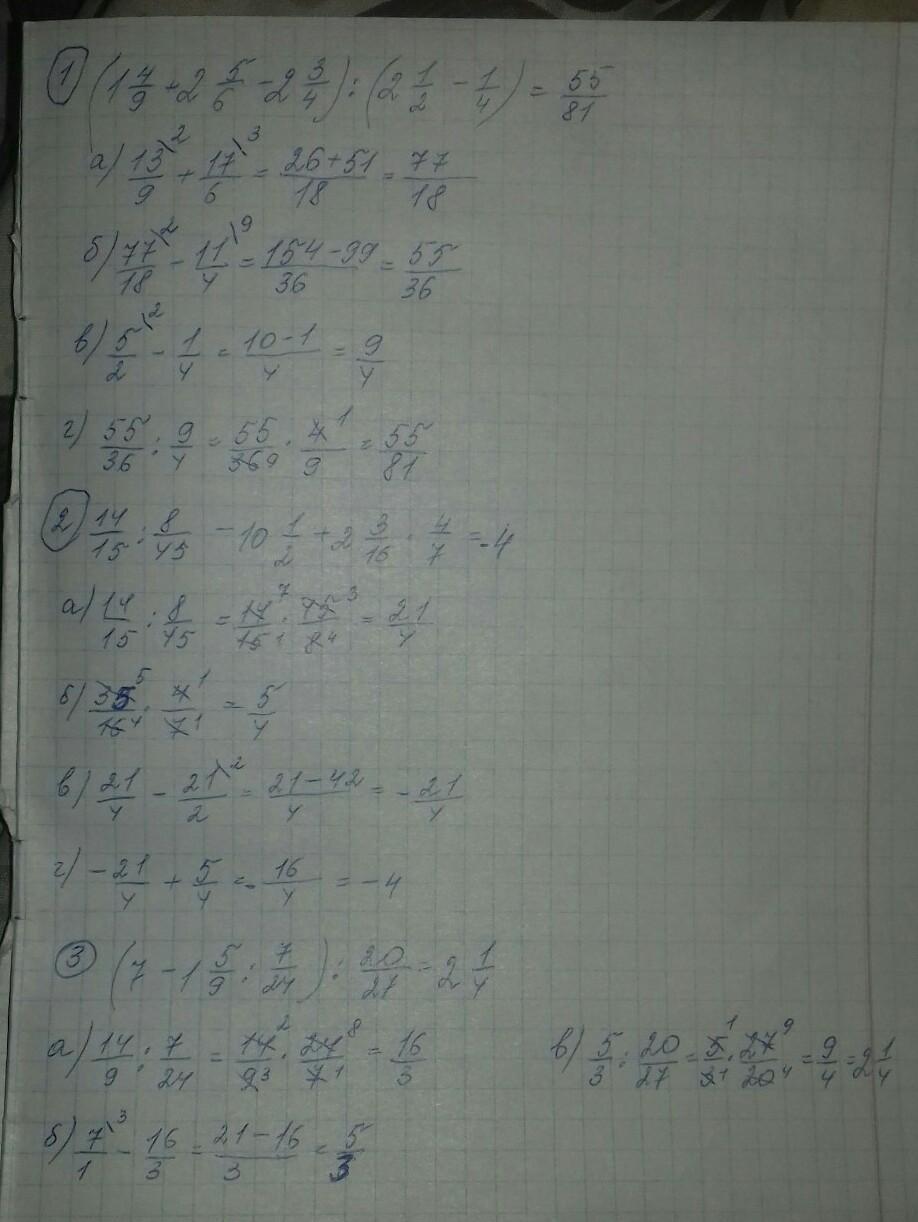 1) (1 4/9 + 2 5/6 - 2 3/4) : (2 1/2 - 1/4) = 55/81
а) 13\2/9 + 17\3/6 = 26+51/18 = 77/18
б) 77\2/18 - 11\9/4 = 154-99/36 = 55/36
в) 5\2/2 - 1/4 = 10-1/4 = 9/4
г) 55/36 : 9/4 = 55/36 9 · 4 1/9 = 55/81
2) 14/15 : 8/45 - 10 1/2 + 2 3/16 · 4/7 = -4
а) 14/15 : 8/45 = 14 7/15 1 · 45 3/8 4 = 21/4
б) 35 5/16 4 · 4 1/7 1 = 5/4
в) 21/4 - 21\2/2 = 21-42/4 = -21/4
г) -21/4 + 5/4 = -16/4 = -4
3) (7 - 1 5/9 : 7/24) : 20/27 = 2 1/4
а) 14/9 : 7/24 = 14 2/9 3 · 24 8/7 1 = 16/3
в) 5/3 : 20/27 = 5 1/3 1 · 27 9/20 4 = 9/4 = 2 1/4
б) 7\3/1 - 16/3 = 21-16/3 = 5/3